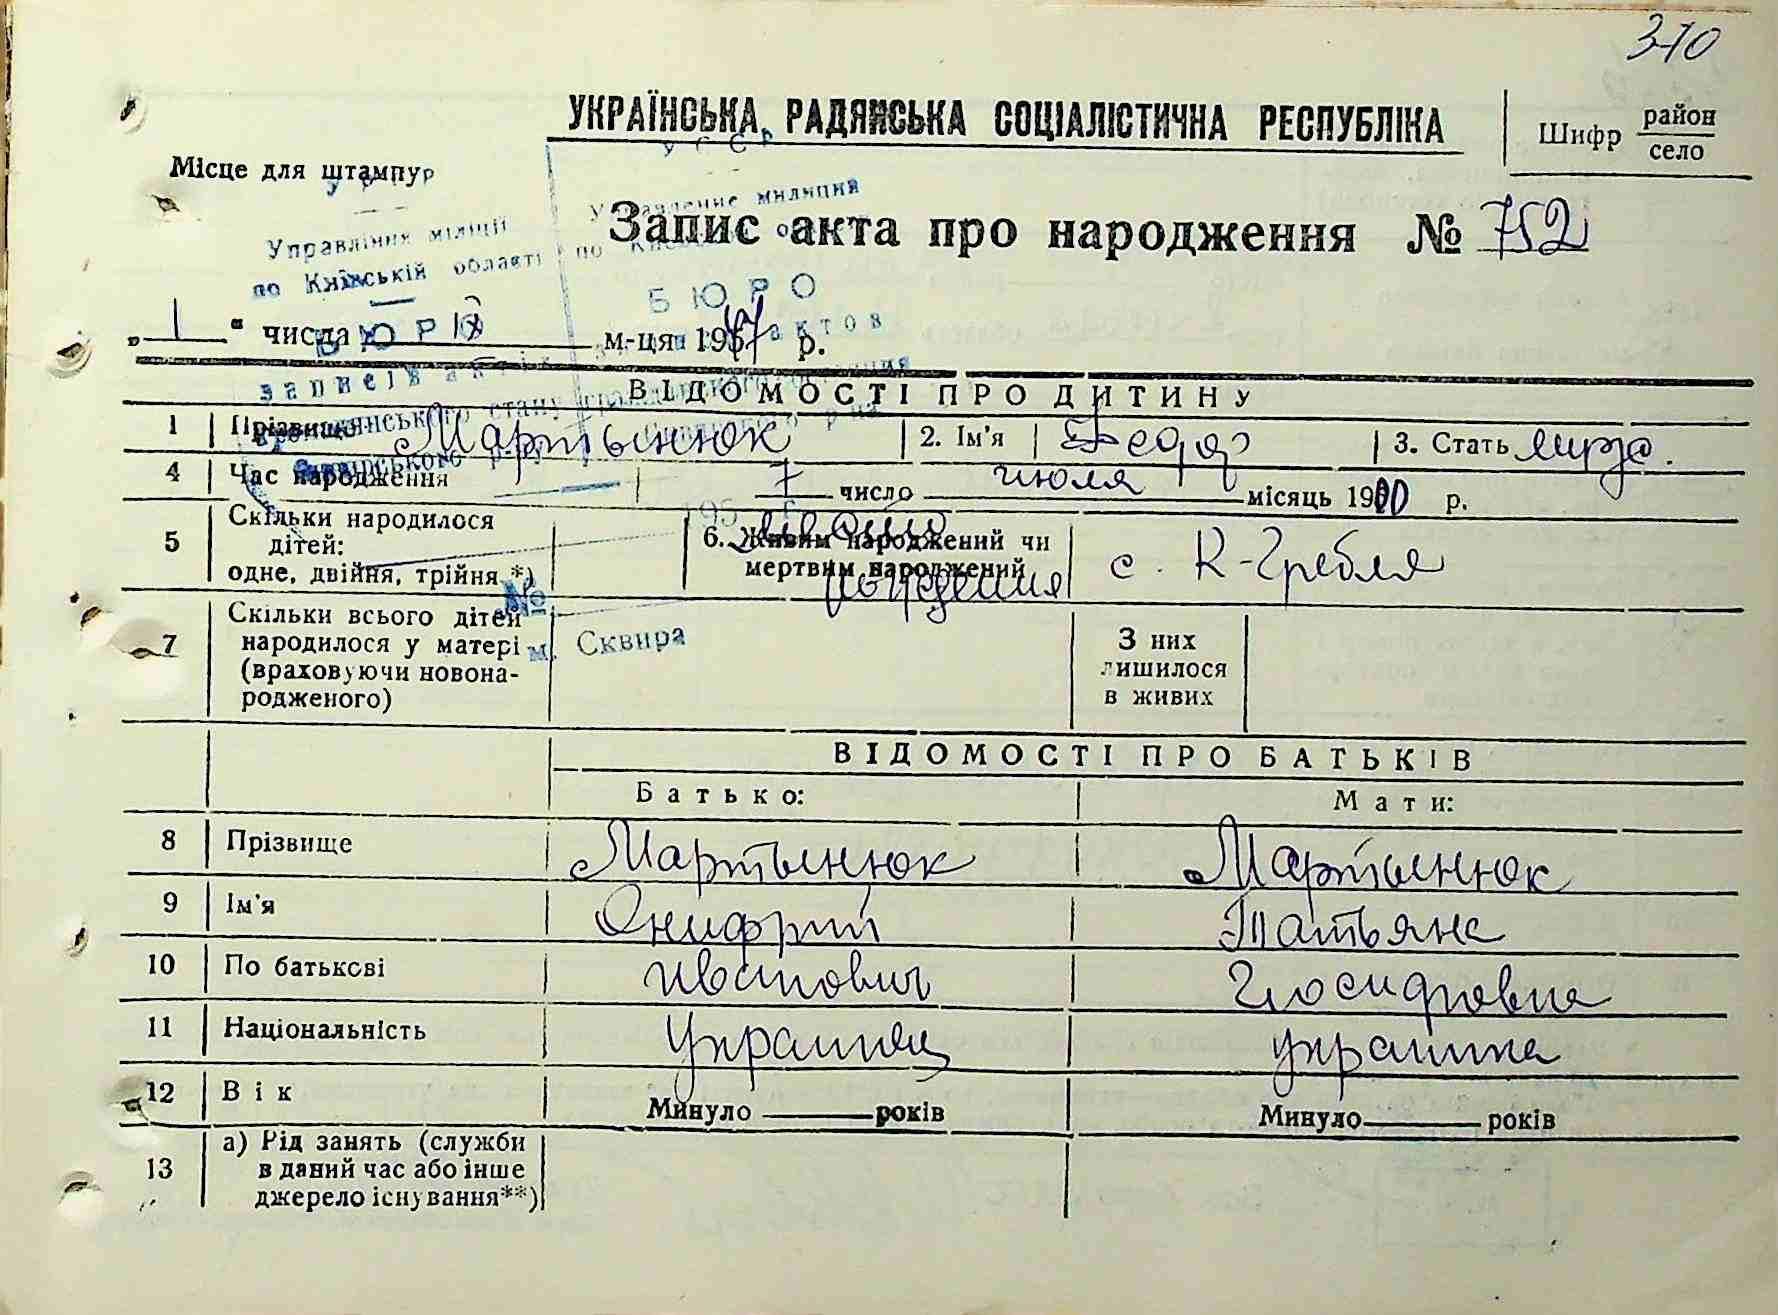 310
УКРАЇНСЬКА РАДЯНСЬКА СОЦІАЛІСТИЧНА РЕСПУБЛІКА
Шифр район
село
Місце для штампу
УССР
Управління міліції
по Київській області
БЮРО
записів актів
Управление милиции
БЮРО
актов
Запис акта про народження № 752
„ 1 “ числа IX м-ця 1957 р.
ВІДОМОСТІ ПРО ДИТИНУ
1 Прізвище Мартынюк 2. Ім'я Федор 3. Стать мужо.
4 Час народження 7 число июля місяць 1900 р.
5 Скільки народилося
дітей:
одне, двійня, трійня *)
6. Живим народжений чи
мертвим народжений
рождения
с. К-Гребля
№
м. Сквира
7 Скільки всього дітей
народилося у матері
(враховуючи новона-
родженого)
З них
лишилося
в живих
ВІДОМОСТІ ПРО БАТЬКІВ
Батько: Мати:
8 Прізвище Мартынюк Мартынюк
9 Ім'я Онифрий Татьяна
10 По батькові Иванович Иосифовна
11 Національність Украинец украинка
12 Вік Минуло ____ років Минуло ____ років
13 а) Рід занять (служби
в даний час або інше
джерело існування**)